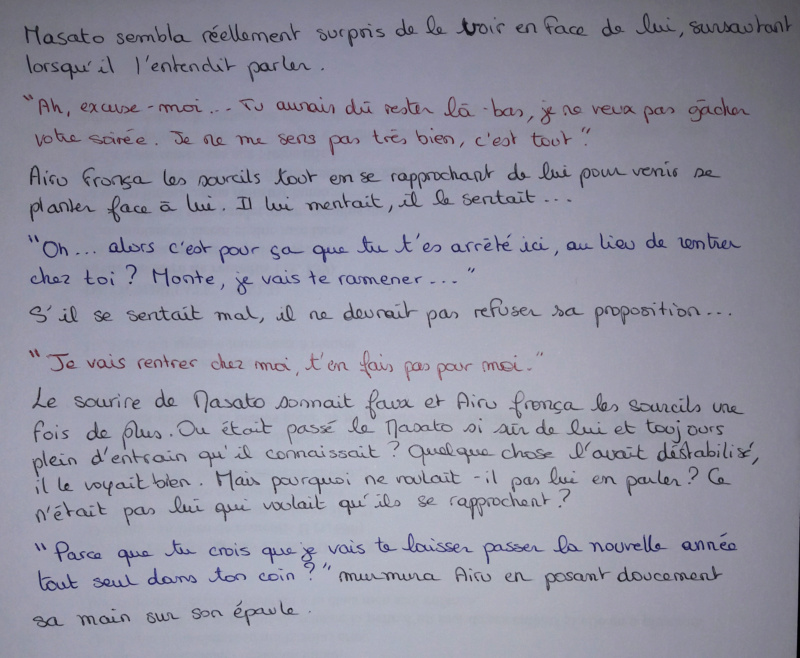 Masato sembla réellement surpris de le voir en face de lui, sursautant
lorsqu'il l'entendit parler.
"Ah, excuse-moi... Tu aurais dû rester là-bas, je ne veux pas gâcher
votre soirée. Je ne me sens pas très bien, c'est tout."
Airu fronça les sourcils tout en se rapprochant de lui pour venir se
planter face à lui. Il lui mentait, il le sentait...
"Oh... alors c'est pour ça que tu t'es arrêté ici, au lieu de rentrer
chez toi ? Monte, je vais te ramener..."
S'il se sentait mal, il ne devrait pas refuser sa proposition...
"Je vais rentrer chez moi, t'en fais pas pour moi."
Le sourire de Masato sonnait faux et Airu fronça les sourcils une
fois de plus. Où était passé le Masato si sûr de lui et toujours
plein d'entrain qu'il connaissait ? Quelque chose l'avait déstabilisé,
il le voyait bien. Mais pourquoi ne voulait-il pas lui en parler ? Ce
n'était pas lui qui voulait qu'ils se rapprochent ?
"Parce que tu crois que je vais te laisser passer la nouvelle année
tout seul dans ton coin ?" murmura Airu en posant doucement
sa main sur son épaule.